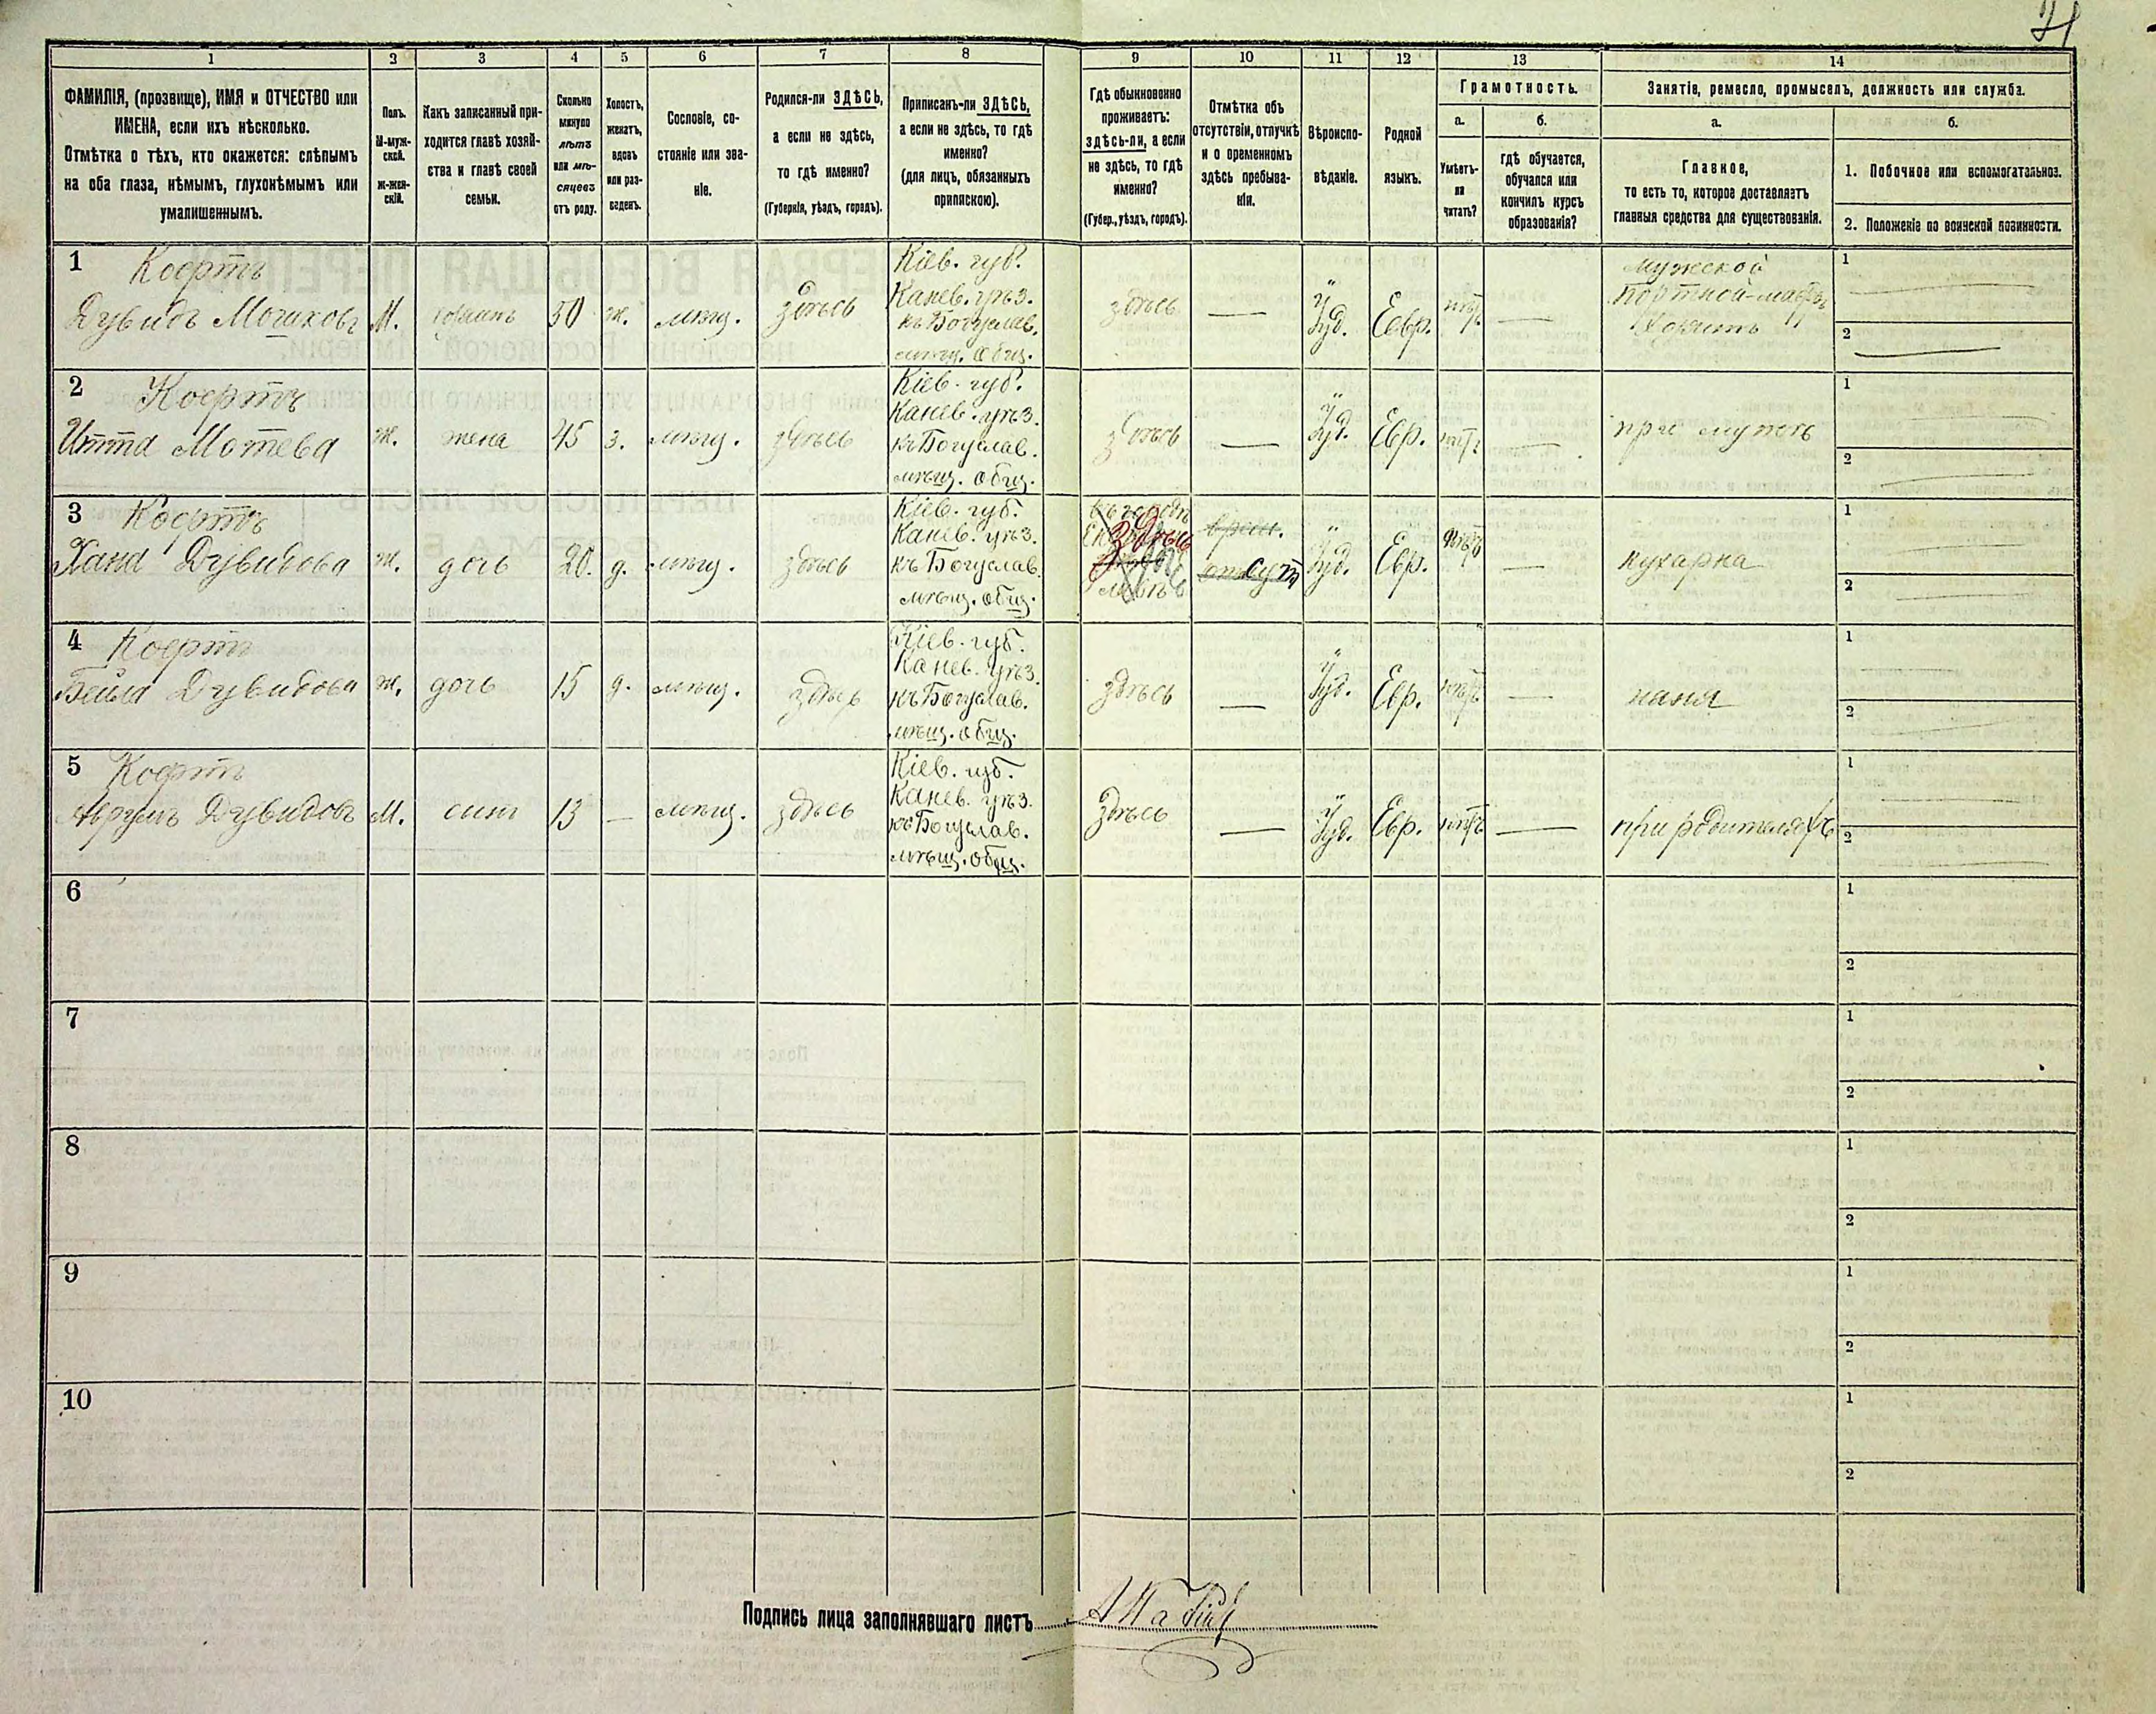 1 2 3 4 5 6 7 8 9 10 11 12 13 14
ФАМИЛІЯ, (прозвище), ИМЯ и ОТЧЕСТВО или
ИМЕНА, если ихъ нѣсколько.
Отмѣтка о тѣхъ, кто окажется: слѣпымъ
на оба глаза, нѣмымъ, глухонѣмымъ или
умалишеннымъ.
Полъ.
М-муж-
ской.
ж-жен-
скій.
Какъ записанный при-
ходится главѣ хозяй-
ства и главѣ своей
семьи.
Сколько
минуло
лѣтъ
или мѣ-
сяцевъ
отъ роду.
Холостъ,
женатъ,
вдовъ
или раз-
веденъ.
Сословіе, со-
стояніе или зва-
ніе.
Родился-ли ЗДѢСЬ,
а если не здѣсь,
то гдѣ именно?
(Губернія, уѣздъ, городъ).
Приписанъ-ли ЗДѢСЬ,
а если не здѣсь, то гдѣ
именно?
(для лицъ, обязанныхъ
припискою).
Гдѣ обыкновенно
проживаетъ:
здѣсь-ли, а если
не здѣсь, то гдѣ
именно?
(Губер., уѣздъ, городъ).
Отмѣтка объ
отсутствіи, отлучкѣ
и о временномъ
здѣсь пребыва-
ніи.
Вѣроиспо-
вѣданіе.
Родной
языкъ.
Грамотность.
а.
Умѣетъ-
ли
читать?
б.
гдѣ обучается,
обучался или
кончилъ курсъ
образованія?
Занятіе, ремесло, промыселъ, должность или служба.
а.
Главное,
то есть то, которое доставляетъ
главныя средства для существованія.
б.
1. Побочное или вспомогательное.
2. Положеніе по воинской повинности.
1 Коертъ
Дувидъ М. 50 ж. мѣщ. здѣсь
Кіев. губ.
Канев. уѣз.
къ Богуслав.
мѣщ. общ.
здѣсь — Іуд. Евр. —
мужской
1
2
2 Коертъ
Итта Мотева ж. жена 45 з. мѣщ. здѣсь
Кіев. губ.
Канев. уѣз.
къ Богуслав.
мѣщ. общ.
здѣсь — Іуд. Евр. — при мужѣ
1
2
3 Коертъ
Хана Дувидова ж. дочь 20. д. мѣщ. здѣсь
Кіев. губ.
Канев. уѣз.
къ Богуслав.
мѣщ. общ.
здѣсь
Іуд. Евр. — кухарка
1
2
4 Коертъ
Бейла Дувидова ж. дочь 15 д. мѣщ. здѣсь
Кіев. губ.
Канев. уѣз.
къ Богуслав.
мѣщ. общ.
здѣсь — Іуд. Евр. — няня
1
2
5 Коертъ
Аврумъ Дувидовъ М. сынъ 13 — мѣщ. здѣсь
Кіев. губ.
Канев. уѣз.
къ Богуслав.
мѣщ. общ.
здѣсь — Іуд. Евр. — при родителяхъ
1
2
6 1
2
7 1
2
8 1
2
9 1
2
10 1
2
Подпись лица заполнявшаго листъ